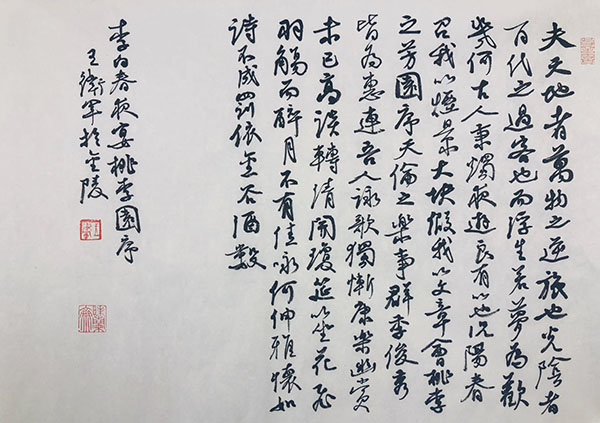 夫天地者萬物之逆旅也光陰者
百代之過客也而浮生若夢為歡
幾何古人秉燭夜遊良有以也況陽春
召我以煙景大塊假我以文章會桃李
之芳園序天倫之樂事群季俊秀
皆為惠連吾人詠歌獨慚康樂幽賞
未已高談轉清開瓊筵以坐花飛
羽觴而醉月不有佳咏何伸雅懷如
詩不成罰依金谷酒數
李白春夜宴桃李園序
王衛軍於金陵